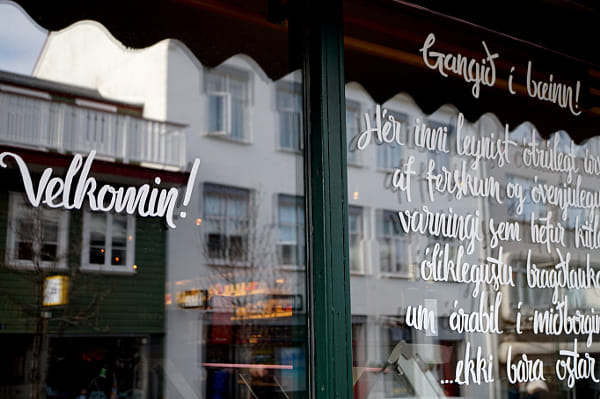 Velkomin!
Gangið í bæinn!
Hér inni leynist ótrúlegt
af ferskum og óvenjuleg
varningi sem hefur kitla
ólíklegustu bragðlauka
um árabil í miðborgin
...ekki bara ostar